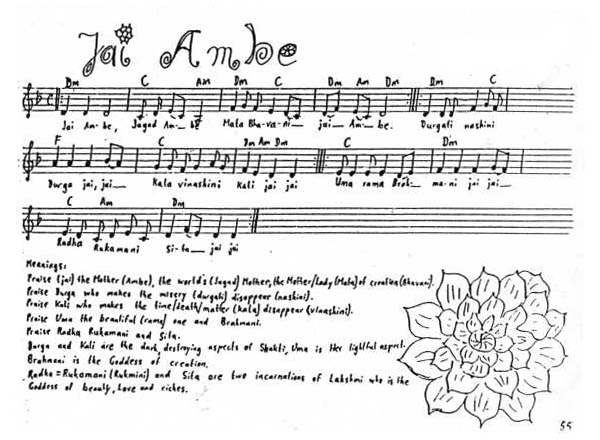 Jai Ambe
Dm C Am Dm C Dm Am Dm Dm C
Jai Am-be, Jagad Am-be Mata Bha-va-ni jai Am-be. Durgati nashini
F C Dm Am Dm C Dm
Durga jai, jai Kala vinashini Kali jai jai Uma rama Brah-ma-ni jai jai
C Am Dm
Radha Rukamani Si-ta jai jai
Meanings:
Praise (jai) the Mother (Ambe), the world's (Jagad) Mother, the Mother/Lady (Mata) of creation (Bhavani).
Praise Durga who makes the misery (durgati) disappear (nashini).
Praise Kali who makes the time/death/matter (kala) disappear (vinashini).
Praise Uma the beautiful (rama) one and Brahmani.
Praise Radha Rukamani and Sita.
Durga and Kali are the dark, destroying aspects of Shakti, Uma is Her lightful aspect.
Brahmani is the Goddess of creation.
Radha = Rukamani (Rukmini) and Sita are two incarnations of Lakshmi who is the
Goddess of beauty, Love and riches.
55